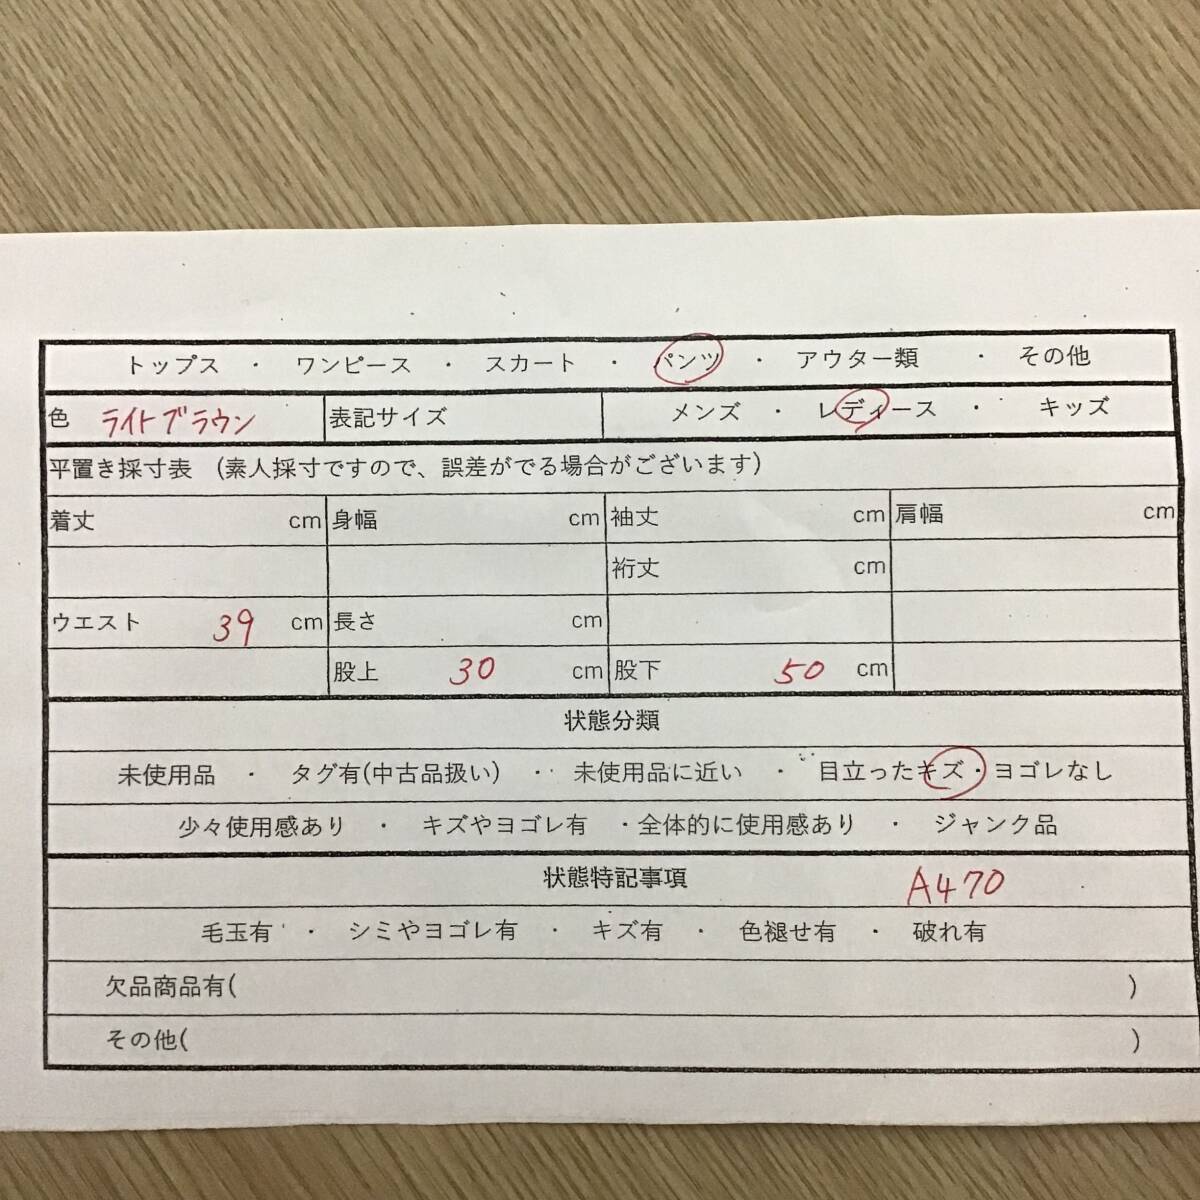 トップス ・ ワンピース ・ スカート ・ パンツ ・ アウター類 ・ その他
色 ライトブラウン 表記サイズ メンズ ・ レディース ・ キッズ
平置き採寸表 (素人採寸ですので、誤差がでる場合がございます)
着丈 cm 身幅 cm 袖丈 cm 肩幅 cm
裄丈 cm
ウエスト 39 cm 長さ cm
股上 30 cm 股下 50 cm
状態分類
未使用品 ・ タグ有(中古品扱い) ・ 未使用品に近い ・ 目立ったキズ・ヨゴレなし
少々使用感あり ・ キズやヨゴレ有 ・全体的に使用感あり ・ ジャンク品
状態特記事項 A470
毛玉有 ・ シミやヨゴレ有 ・ キズ有 ・ 色褪せ有 ・ 破れ有
欠品商品有( )
その他( )